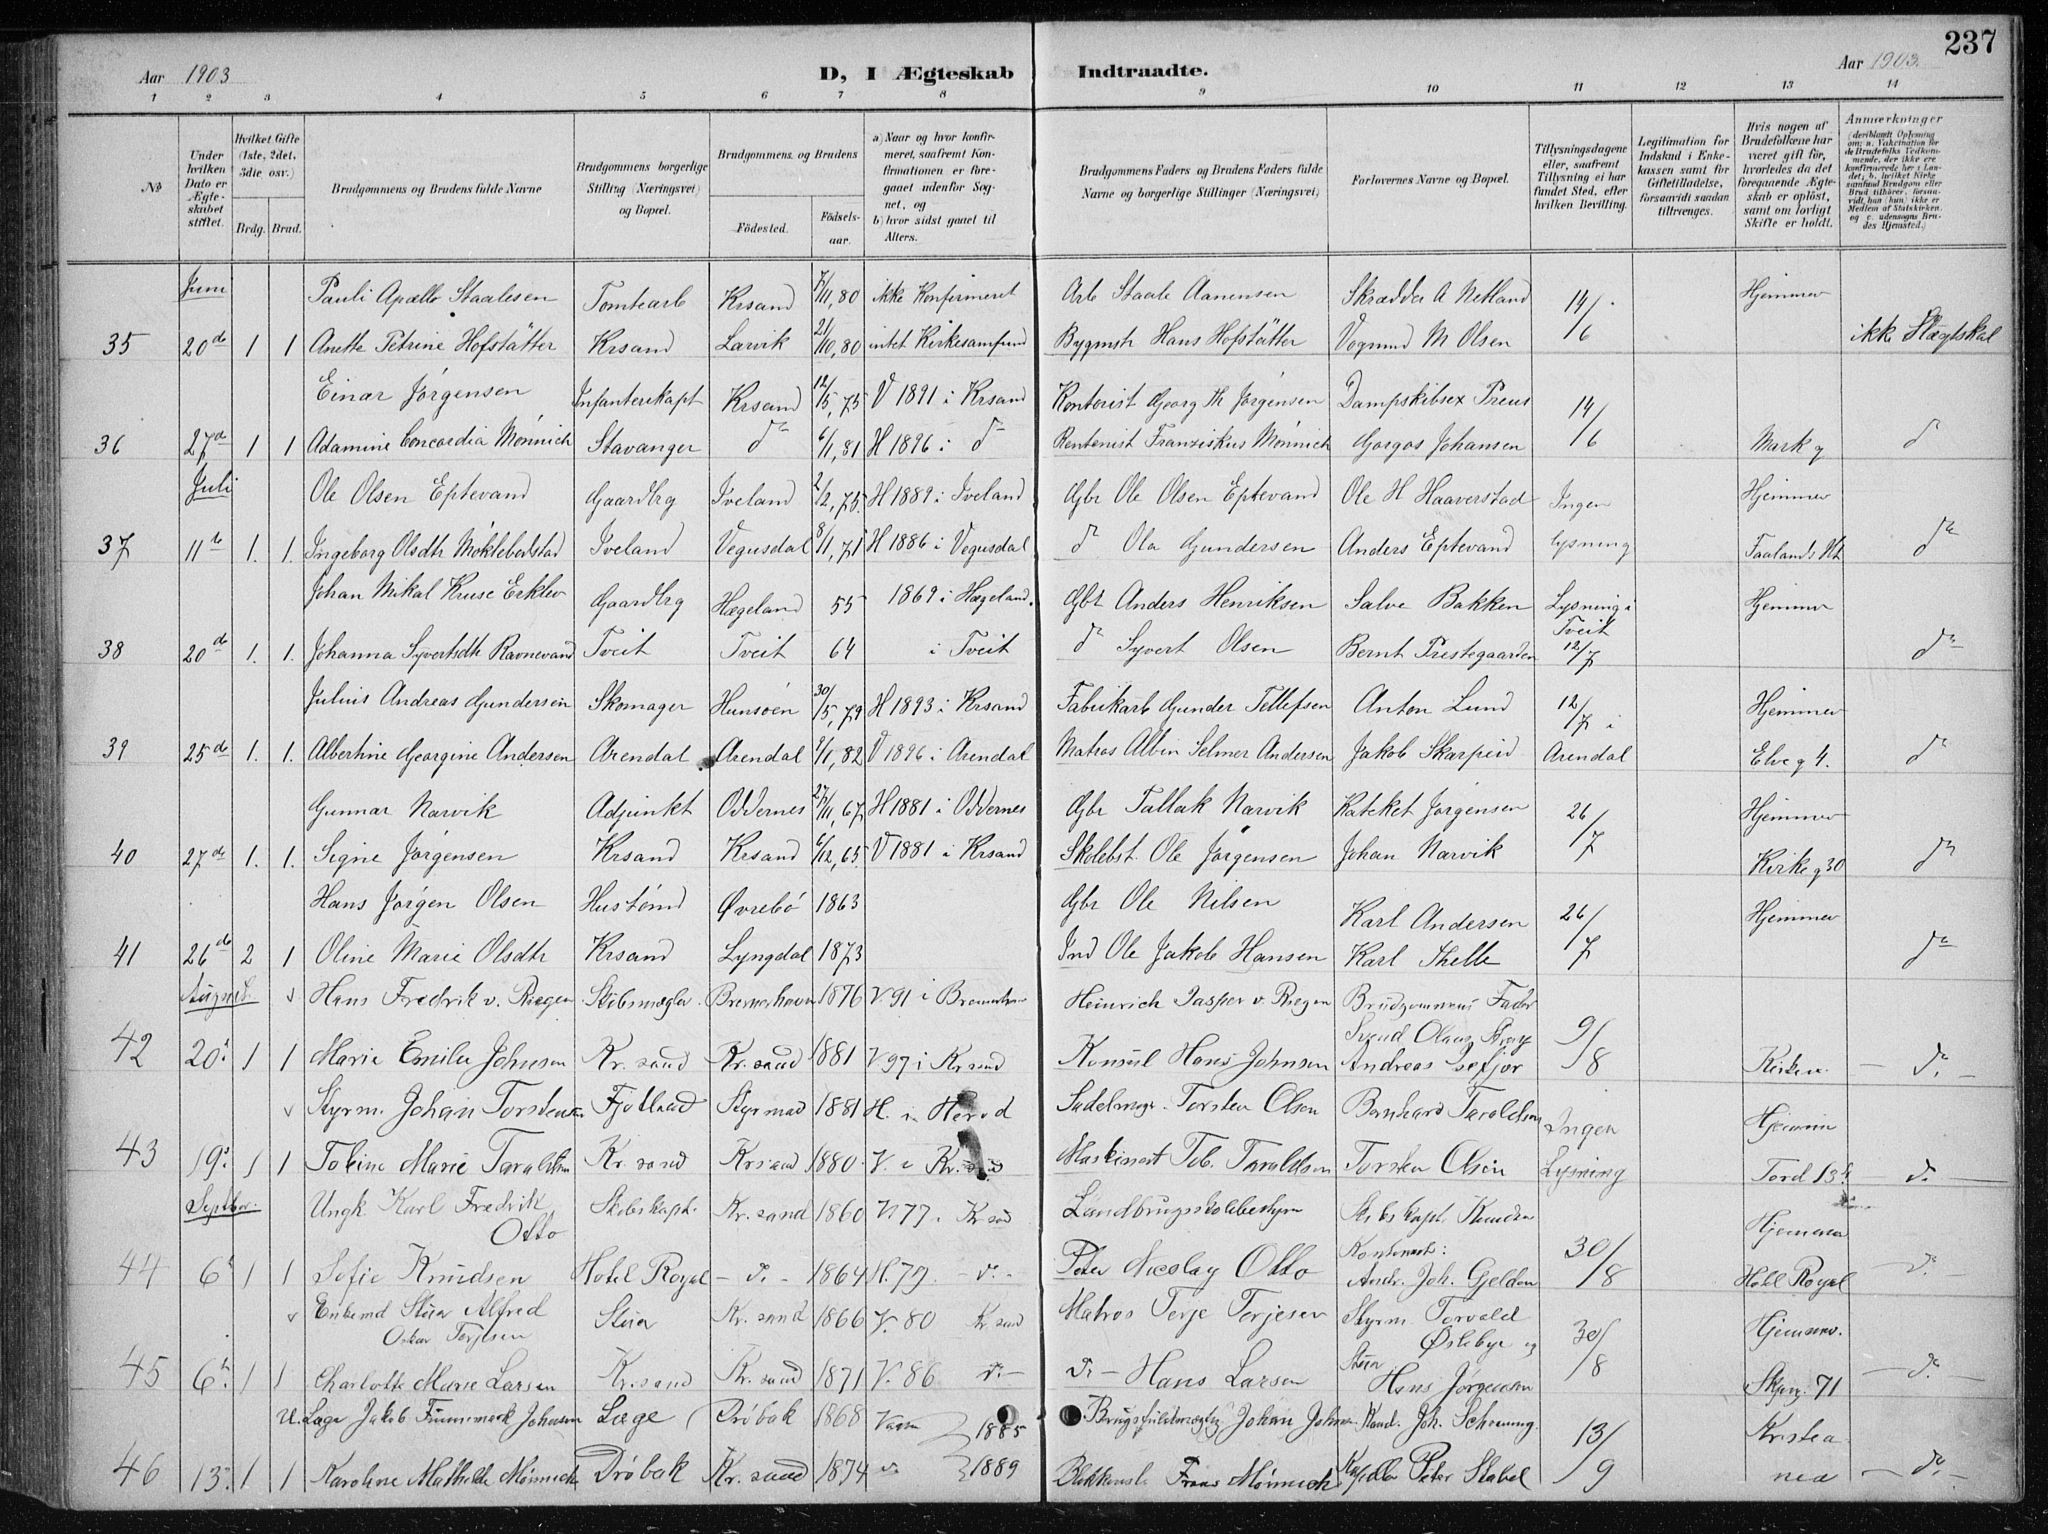 237
Aar 1903 D, I Ægteskab Indtraadte. Aar 1903.
1 2 3 4 5 6 7 8 9 10 11 12 13 14
No
Under hvilken Dato er Ægteskabet stiftet.
Hvilket Gifte (1ste, 2det, 3die osv.)
Brdg. Brud.
Brudgommens og Brudens fulde Navne
Brudgommens borgerlige Stilling (Næringsvei) og Bopæl.
Brudgommens og Brudens
Födested. Födselsaar.
a) Naar og hvor konfirmeret, saafremt Konfirmationen er foregaaet udenfor Sognet, og
b) hvor sidst gaaet til Alters.
Brudgommens Faders og Brudens Faders fulde Navne og borgerlige Stillinger (Næringsvei)
Forlovernes Navne og Bopæl.
Tillysningsdagene eller, saafremt Tillysning ei har fundet Sted, efter hvilken Bevilling.
Legitimation for Indskud i Enkekassen samt for Giftetilladelse, forsaavidt saadan tiltrænges.
Hvis nogen af Brudefolkene har været gift før, hvorledes da det foregaaende Ægteskab er opløst, samt om lovligt Skifte er holdt.
Anmærkninger
Juni Pauli Apollo Staalesen Tomtearb Krsand 7/11,80 ikke Konfirmeret Arb Staale Aanensen Skrædder A Netland 14/ Hjemmev
35 20de 1 1 Anette Petrine Hofstätter Krsand Larvik 21/10,80 intet Kirkesamfund Bygmstr Hans Hofstätter Vognmd M Olsen 6 ikke Slægtskab
Einar Jørgensen Infanterikapt Krsand 12/5,75 V 1891 i Krsand Kontorist Georg Th Jørgensen Dampskibsex Preus 14/
36 27de 1 1 Adamine Concordia Mönnich Stavanger do 6/1,81 H 1896 i do Rentenist Franziskus Mönnich Gorgas Johansen 6 Mark g do
Juli Ole Olsen Eptevand Gaardbrg Iveland 2/2,75. H 1889 i Iveland Gbr Ole Olsen Eptevand Ole H Haaverstad Ingen Hjemmev
37 11te 1. 1. Ingeborg Olsdtr Møklebostad Iveland Vegusdal 8/1,71 H 1886 i Vegusdal do Ola Gundersen Anders Eptevand lysning do
Johan Mikal Kruse Erklev Gaardbrg Hægeland 55 1869 i Hægeland. Gbr Anders Henriksen Salve Bakken Lysning i Tveit Hjemmev
38 20de 1. 1. Johanna Syvertsdtr Ravnevand Tveit Tveit 64 i Tveit do Syvert Olsen Bernt Prestegaarden 12/7 do
Julius Andreas Gundersen Skomager Hunsøen 30/5,79 H 1893 i Krsand Fabrikarb Gunder Tellefsen Anton Lund 12/7 i Hjemmev
39 25de 1. 1. Albertine Georgine Andersen Arendal Arendal 9/1,82 V 1896 i Arendal Matros Albin Selmer Andersen Jakob Skarpeid Arendal Elve g 4. do
Gunnar Narvik Adjunkt Oddernes 27/11,67 H 1881 i Oddernes Gbr Tallak Narvik Kateket Jørgensen 26/ Hjemmev
40 27de 1. 1. Signe Jørgensen Krsand Krsand 6/12,65. V 1881 i Krsand Skolebst. Ole Jørgensen Johan Narvik 7 Kirke g 30 do
Hans Jørgen Olsen Hustømd Øvrebö 1863 Gbr Ole Nilsen Karl Andersen 26/ Hjemmev
41 26de 2 1 Oline Marie Olsdtr Krsand Lyngdal 1873 Ind Ole Jakob Hansen Karl Thelle 7 do
August Hans Fredrik v. Riegen Skibsmægler Bremerhaven 1876 V. 91 i Heinrich Jasper v. Riegen Brudgommens Fader
42 20. 1 1 Marie Emilie Johnsen Kr. sand Kr. sand 1881 V. 97 i Kr sand Konsul Hans Johnson Andreas 9/8 Kirken — do. —
Styrm. Johan Torstensen Fjotland 1881 H. i Sadelmgr. Torsten Olsen Bernhard Taraldsen Ingen Hjemm
43 19. 1 1 Tobine Marie Taraldsen Kr. sand Krsand 1880. V. i Maskinist Tob. Taraldsen Torsten Olsen Lysning Tord 13. — do. —
Septbr. Ungk Karl Fredrik Otto Skibskapt. Kr. sand 1860 V. 77 i Landbrugsskolebestyrer Skibskapt. Knudsen Hjemmev
44 6. 1 1 Sofie Knudsen Hotel Royal — do. — 1864 H. 79. — do. — Peter Nicolay Otto Andr. Joh. 30/8 Hotel Royal do.
Enkemd Alfred Oskar Terjesen Kr. sand 1866 V. 80 Kr. sand Matros Terje Terjesen Styrm Torvald Østebye og 30/ Hjemmev.
45 6. 1 1 Charlotte Marie Larsen Kr. sand Kr. sand 1871 V. 86 do. — do. — Hans Larsen Hans Jørgensen 8 71 — do.
U. Læge Jakob Finnemark Johnsen Læge Dröbak 1868 1885 Johan Johnsen Kand. Joh. Schonung 13/ Kristia
46 13. 1 1 Karoline Mathilde Mönnich Dröbak Kr. sand 1874 do 1889 Frans Mönnich Peter Stabel 9 nea — do. —